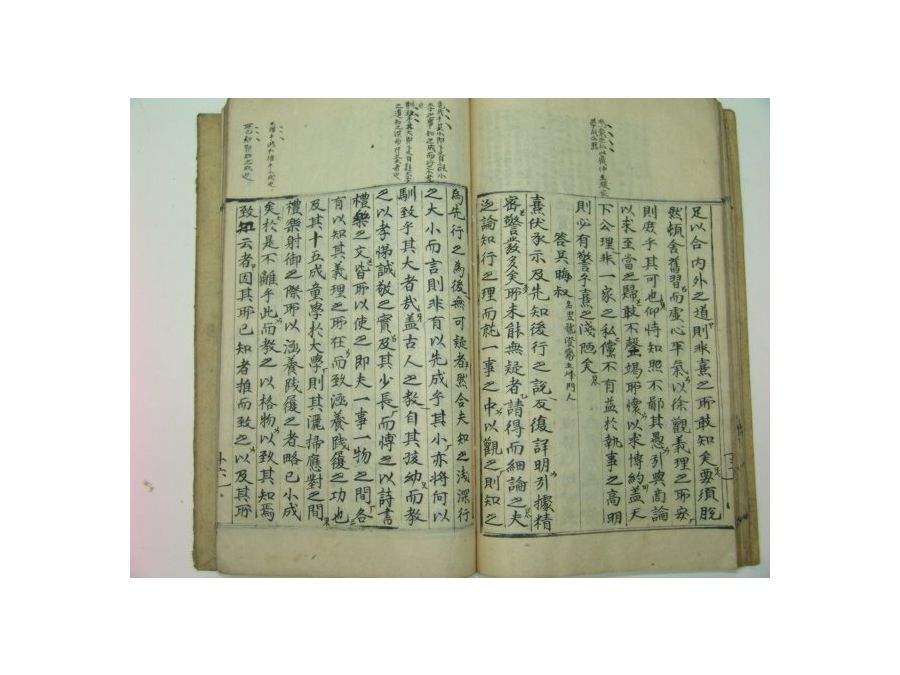 足以合內外之道則非熹之所敢知矣要須脫
然頓舍舊習而虛心平氣以徐觀義理之所安
則庶乎其可也仰恃知照不鄙其愚引與商論
以求至當之歸敢不罄竭所懷以求博約盖天
下公理非一家之私儻不有益於執事之高明
則必有警乎熹之淺陋矣
答吳晦叔
名翌龍
五峰門人
熹伏承示及先知後行之說反復詳明引據精
密警發多矣所未能無疑者請得而細論之夫
泛論知行之理而就一事之中以觀之則知之
為先行之為後無可疑者然合夫知之淺深行
之大小而言則非有以先成乎其小亦將何以
馴致乎其大者哉盖古人之教自其孩幼而教
之以孝悌誠敬之實及其少長而博之以詩書
禮樂之文皆所以使之即夫一事一物之間各
有以知其義理之所在而致涵養踐履之功也
及其十五成童學於大學則其灑掃應對之間
禮樂射御之際所以涵養踐履之者略已小成
矣於是不離乎此而教之以格物以致其知焉
致知云者因其所已知者推而致之以及其所